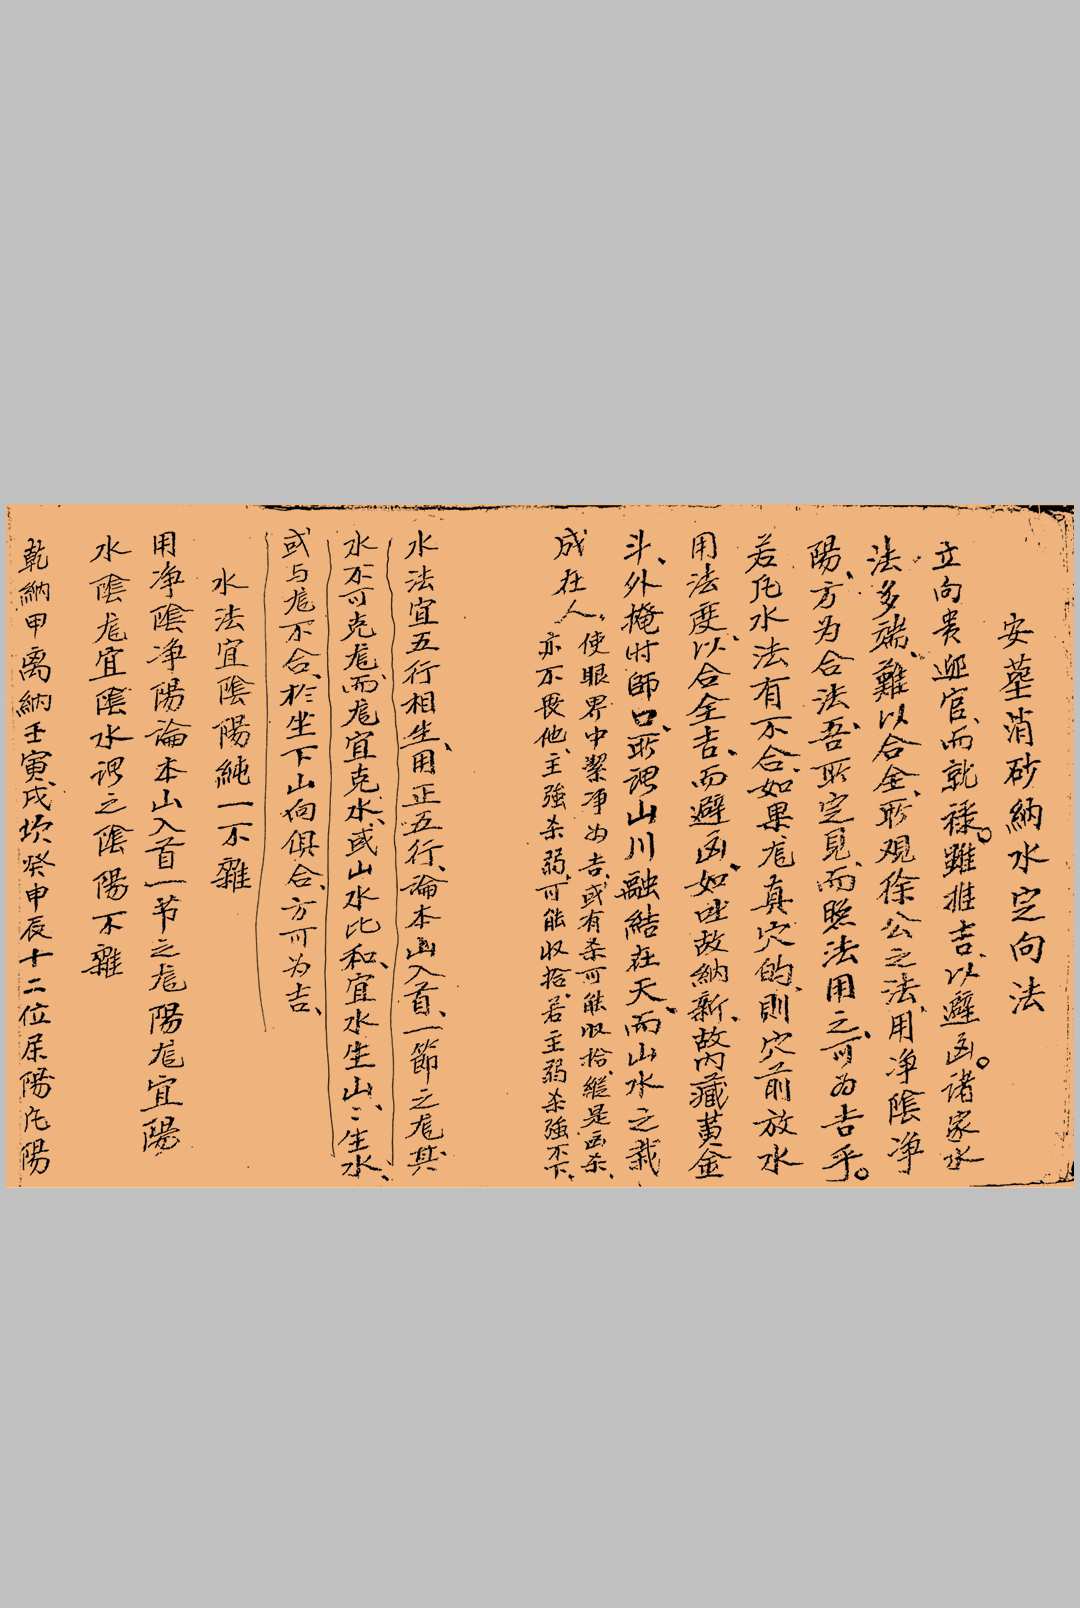 安墓消砂納水定向法
立向貴迎官、而就祿。雖推吉、以避凶。諸家水
法多端、難以合全、所观徐公之法、用净陰净
陽、方为合法、吾所定見、而照法用之、可为吉乎。
若凡水法有不合、如果龙真穴的、則穴前放水
用法度、以合全吉、而避凶、如吐故納新、故内藏黄金
斗、外掩时師口、所謂山川融結在天、而山水之裁
成在人、使眼界中潔净为吉、或有杀可能収拾、縱是凶杀、
亦不畏他、主強杀弱、可能収拾、若主弱杀強不下、
水法宜五行相生、用正五行、論本山入首、一節之龙、其
水不可克龙、而龙宜克水、或山水比和、宜水生山、〻生水、
或与龙不合、於坐下山向俱合、方可为吉、
水法宜陰陽純一不雜
用净陰净陽論本山入首一节之龙陽龙宜陽
水陰龙宜陰水謂之陰陽不雜
乾納甲离納壬寅戌坎癸申辰十二位属陽凡陽